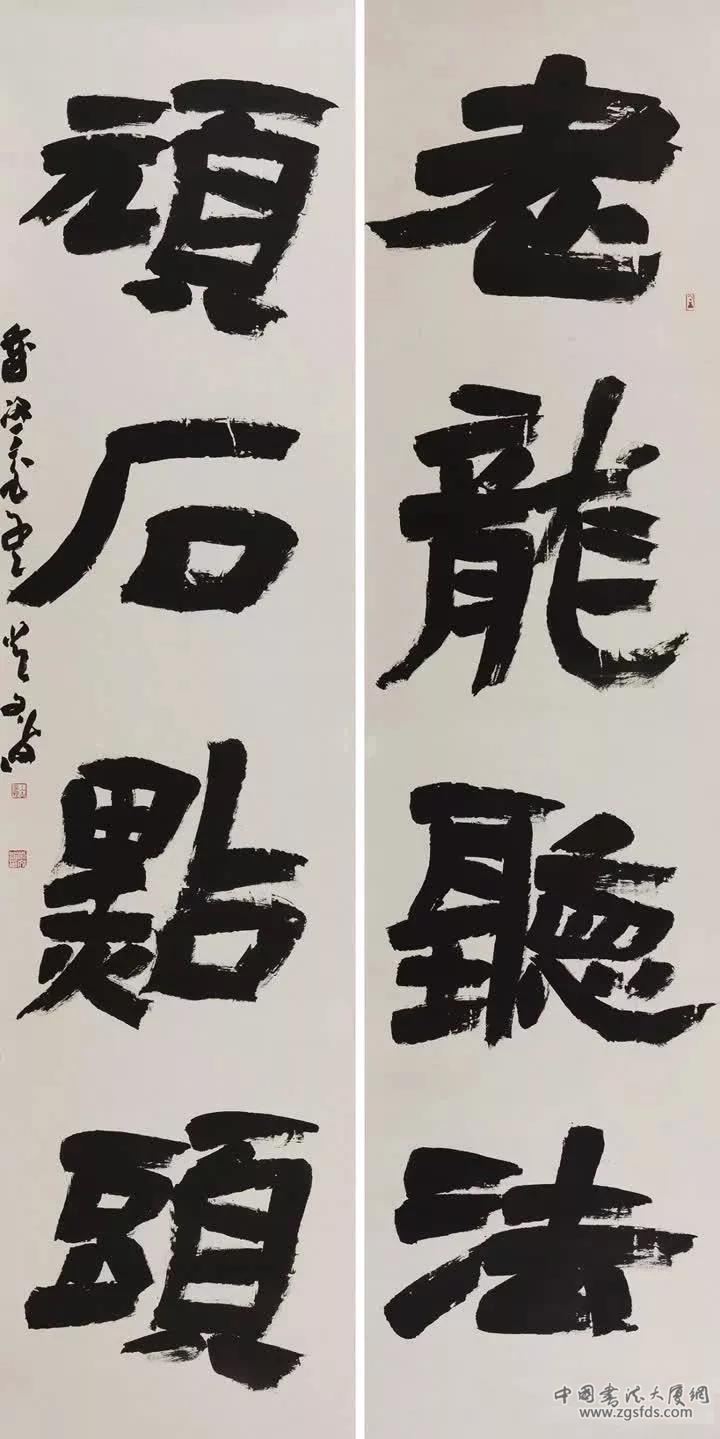 老龍聽法
頑石點頭
中國書法大厦網
www.zgsfds.com